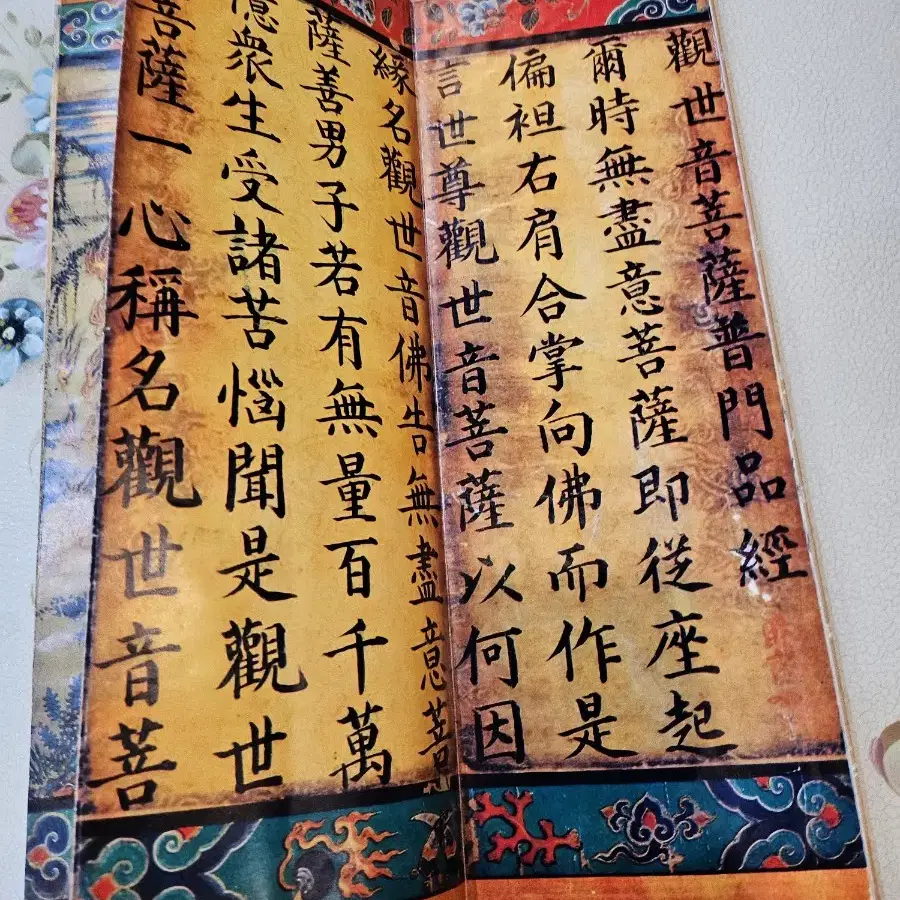 觀世音菩薩普門品經
爾時無盡意菩薩即從座起
偏袒右肩合掌向佛而作是
言世尊觀世音菩薩以何因
緣名觀世音佛告無盡意菩
薩善男子若有無量百千萬
億衆生受諸苦惱聞是觀世
音菩薩一心稱名觀世音菩